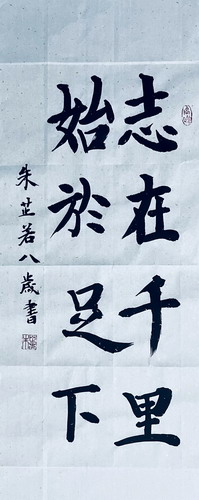 志在千里
始於足下
朱芷若八歲書